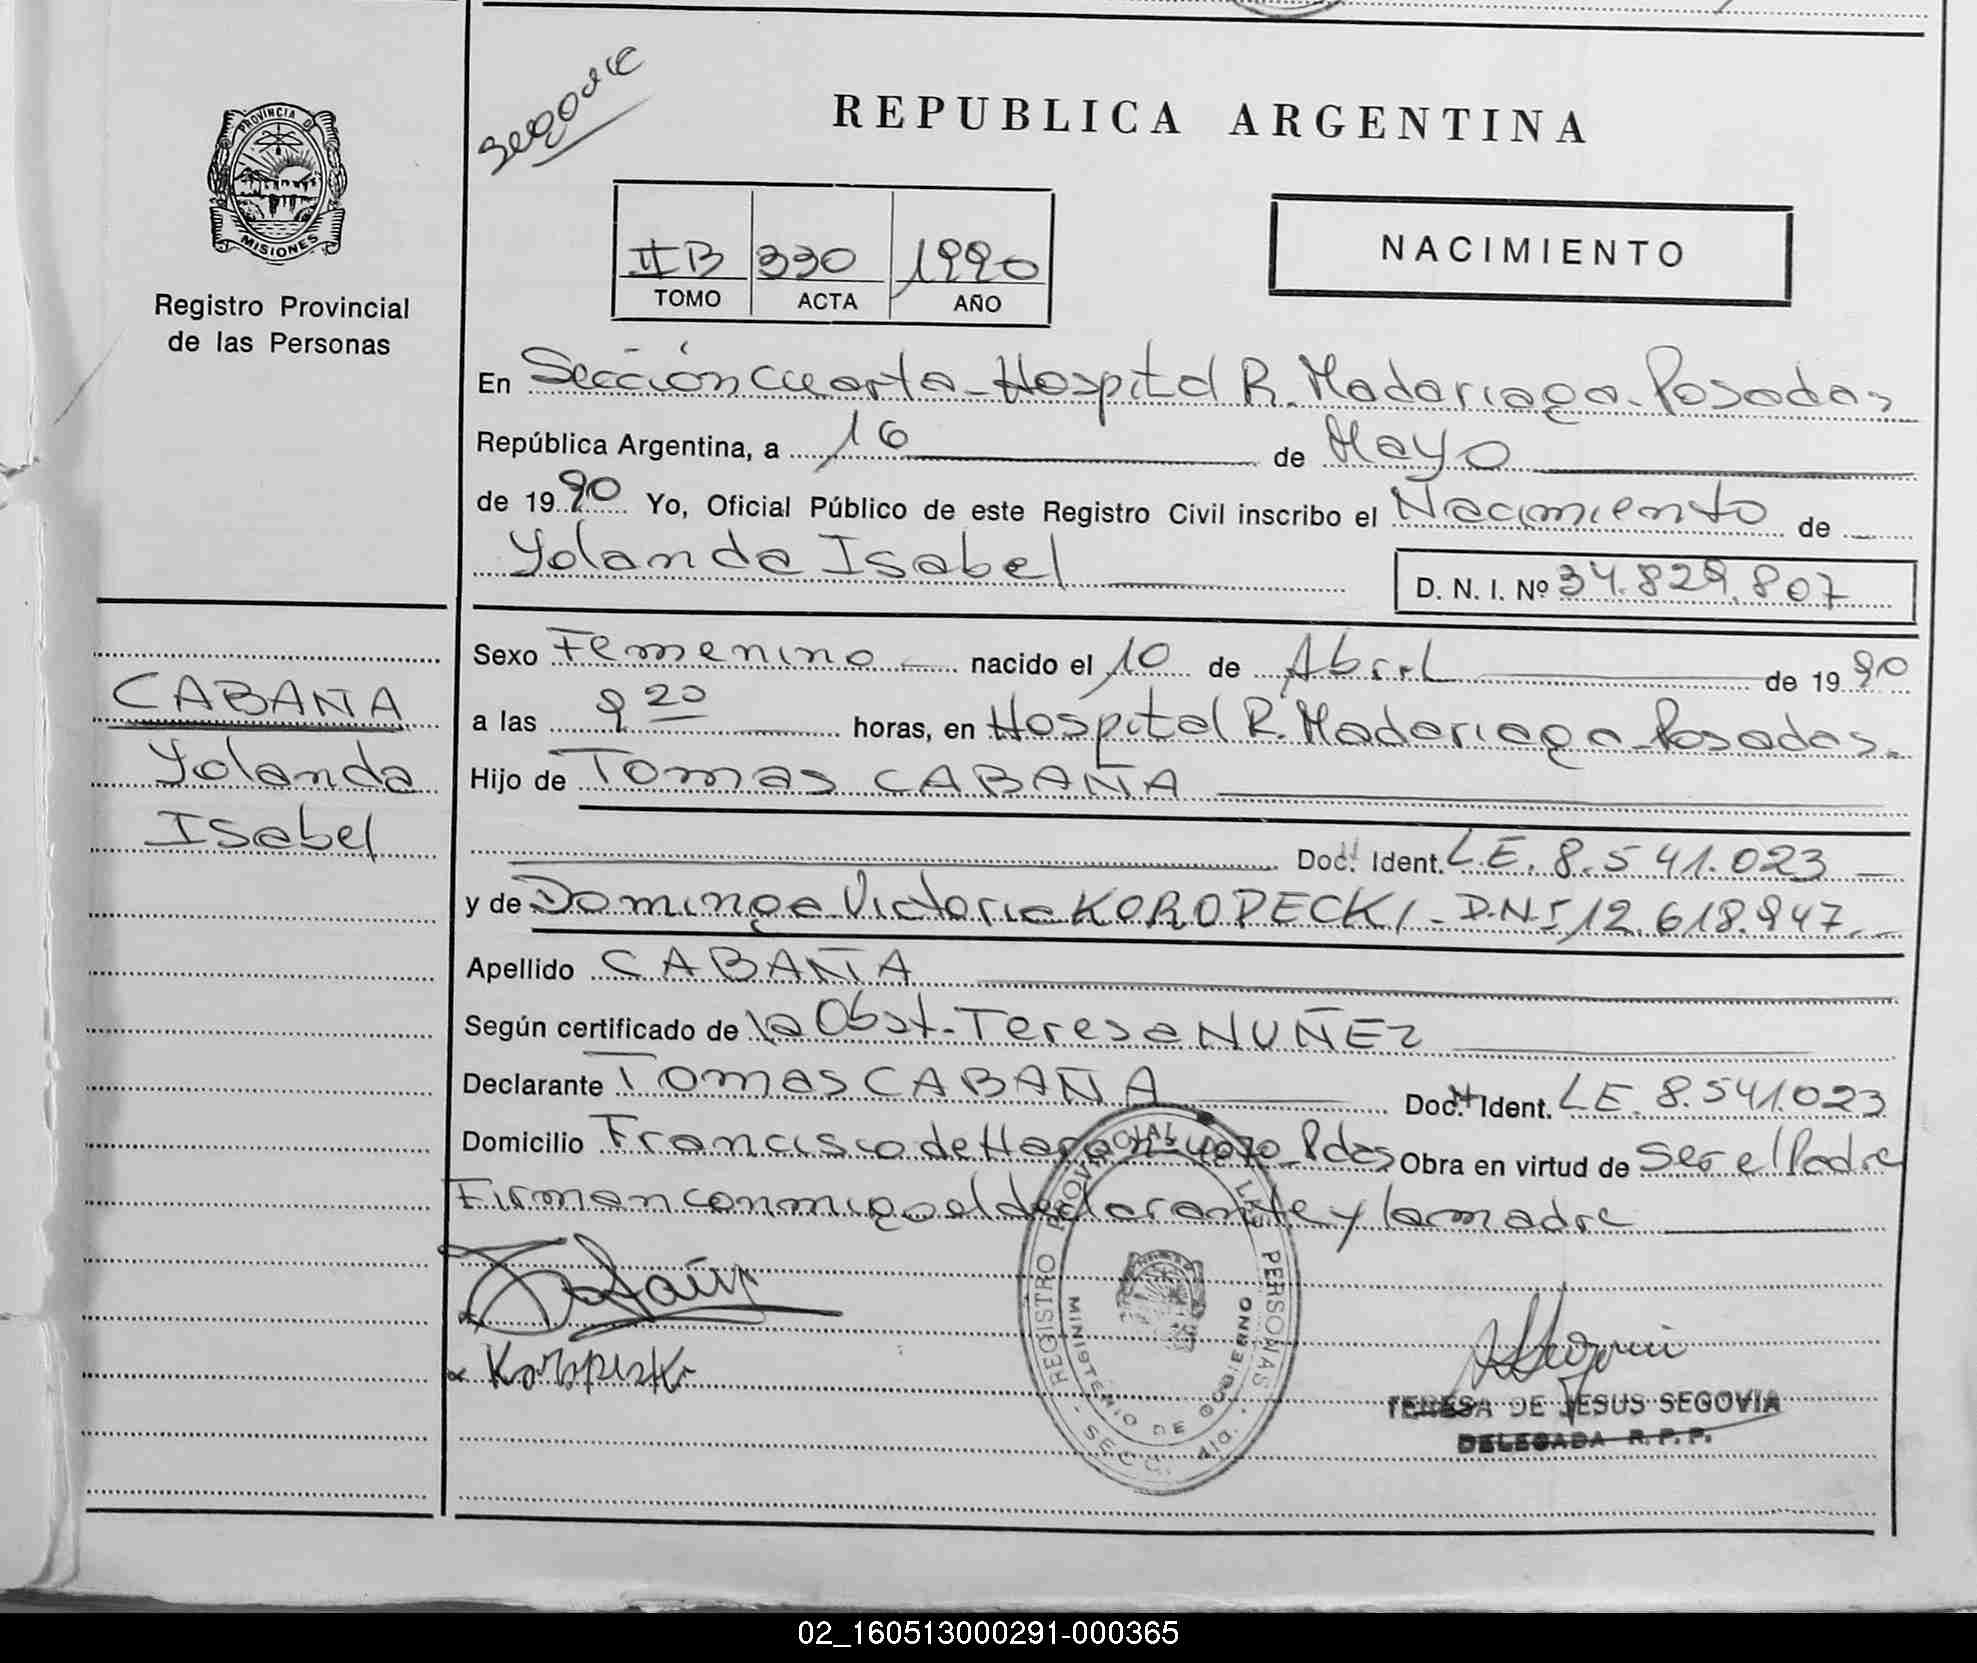 PROVINCIA DE
MISIONES
Registro Provincial
de las Personas
CABAÑA
Yolanda
Isabel
REPUBLICA ARGENTINA
IIB 330 1990
TOMO ACTA AÑO
NACIMIENTO
En Sección Cuarta - Hospital R. Madariaga - Posadas
República Argentina, a 16 de Mayo
de 1990 Yo, Oficial Público de este Registro Civil inscribo el Nacimiento de
Yolanda Isabel D. N. I. Nº 34.829.807
Sexo Femenino nacido el 10 de Abril de 1990
a las 9 20 horas, en Hospital R. Madariaga - Posadas.
Hijo de Tomas CABAÑA
Doc. Ident. L.E. 8.541.023
y de Dominga Victoria KOROPECKI - D.N.I 12.618.947
Apellido CABAÑA
Según certificado de la Obst. Teresa NUÑEZ
Declarante Tomas CABAÑA Doc. Ident. LE. 8.541.023
Domicilio Francisco de Haro Pdas Obra en virtud de Ser el Padre
Firman conmigo el declarante y la madre
REGISTRO PROVINCIAL LAS PERSONAS
MINISTERIO DE GOBIERNO
SECC. 4ta.
TERESA DE JESUS SEGOVIA
DELEGADA R. P. P.
02_160513000291-000365